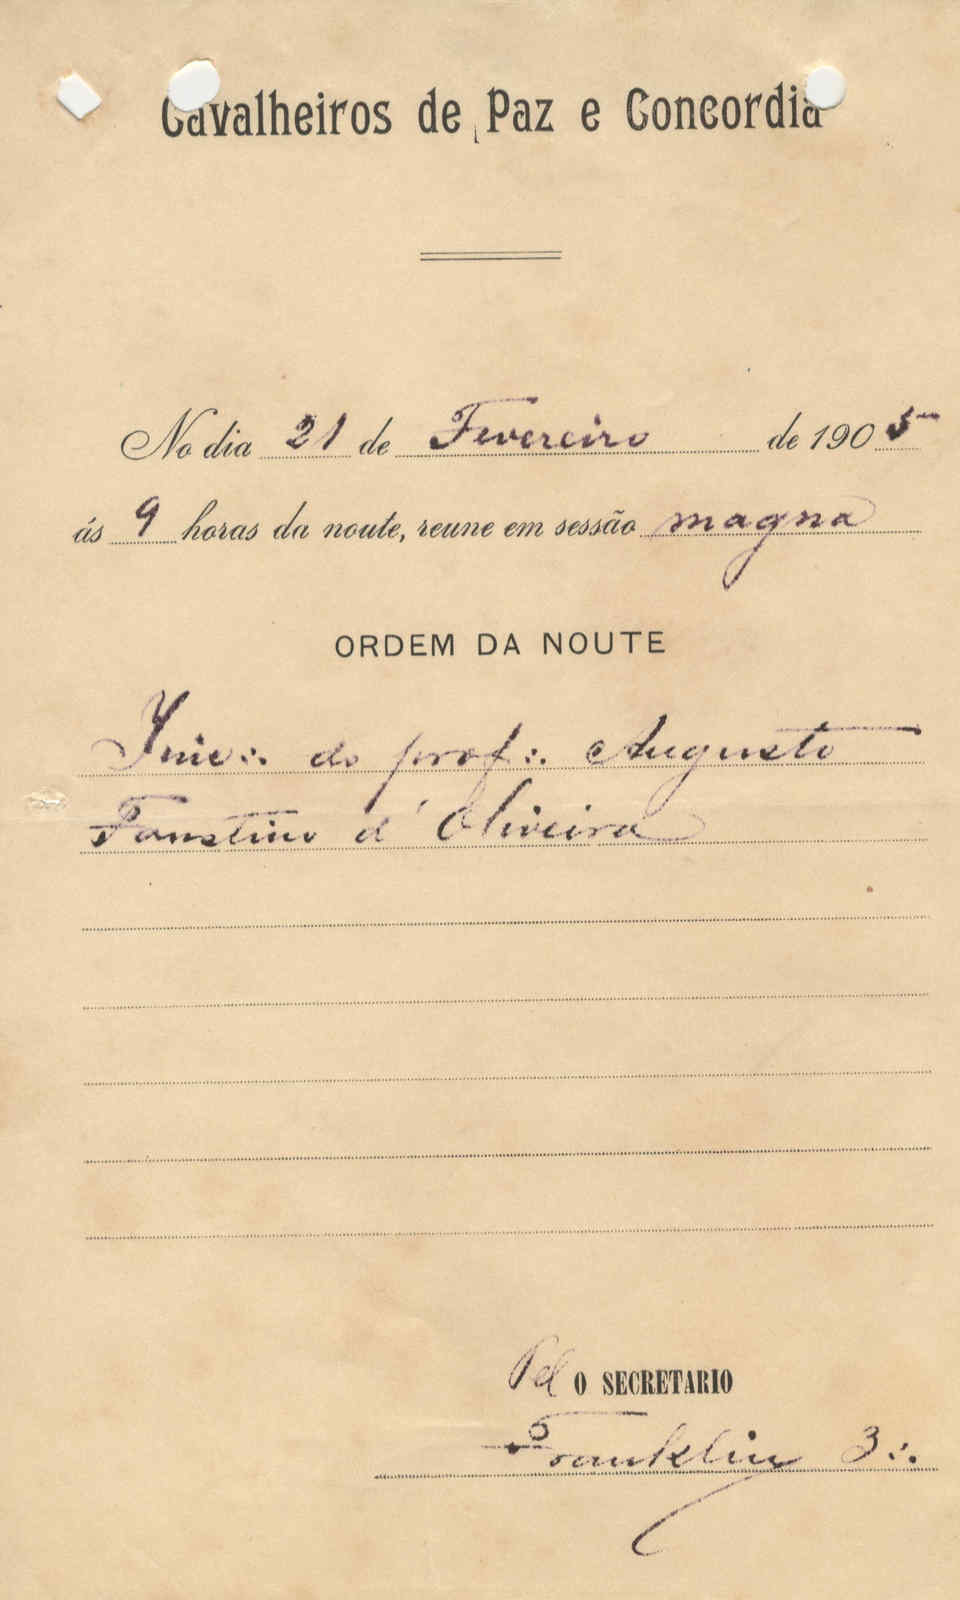 Cavalheiros de Paz e Concordia
No dia 21 de Fevereiro de 1905
ás 9 horas da noute, reune em sessão magna
ORDEM DA NOUTE
Inic∴ do prof∴ Augusto
Faustino d'Oliveira
Pel O SECRETARIO
Franklin 3∴